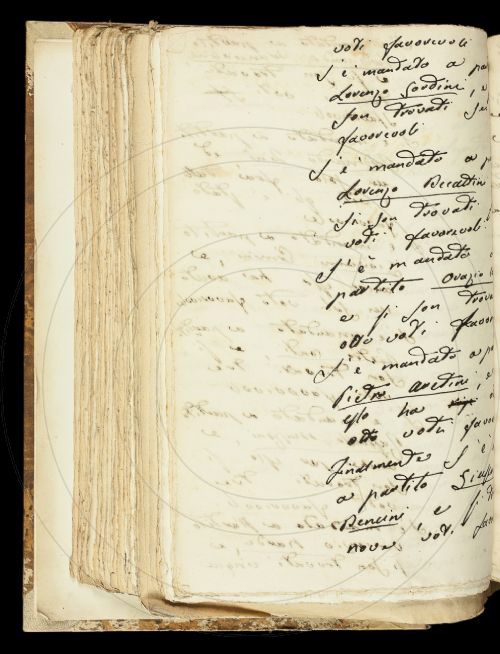 voti favorevoli
S'è mandato a pa
Lorenzo Sordini, e
son trovati sei
favorevoli
S'è mandato a p
Lorenzo Beccattini
si son trovati
voti favorevoli
S'è mandato
partito Orazio
e si son trova
otto voti favor
S'è mandato a pa
Pietro Aretini, e
esso ha
otto voti favor
Finalmente S'è
a partito Giusep
Bencini e si
nove voti fav